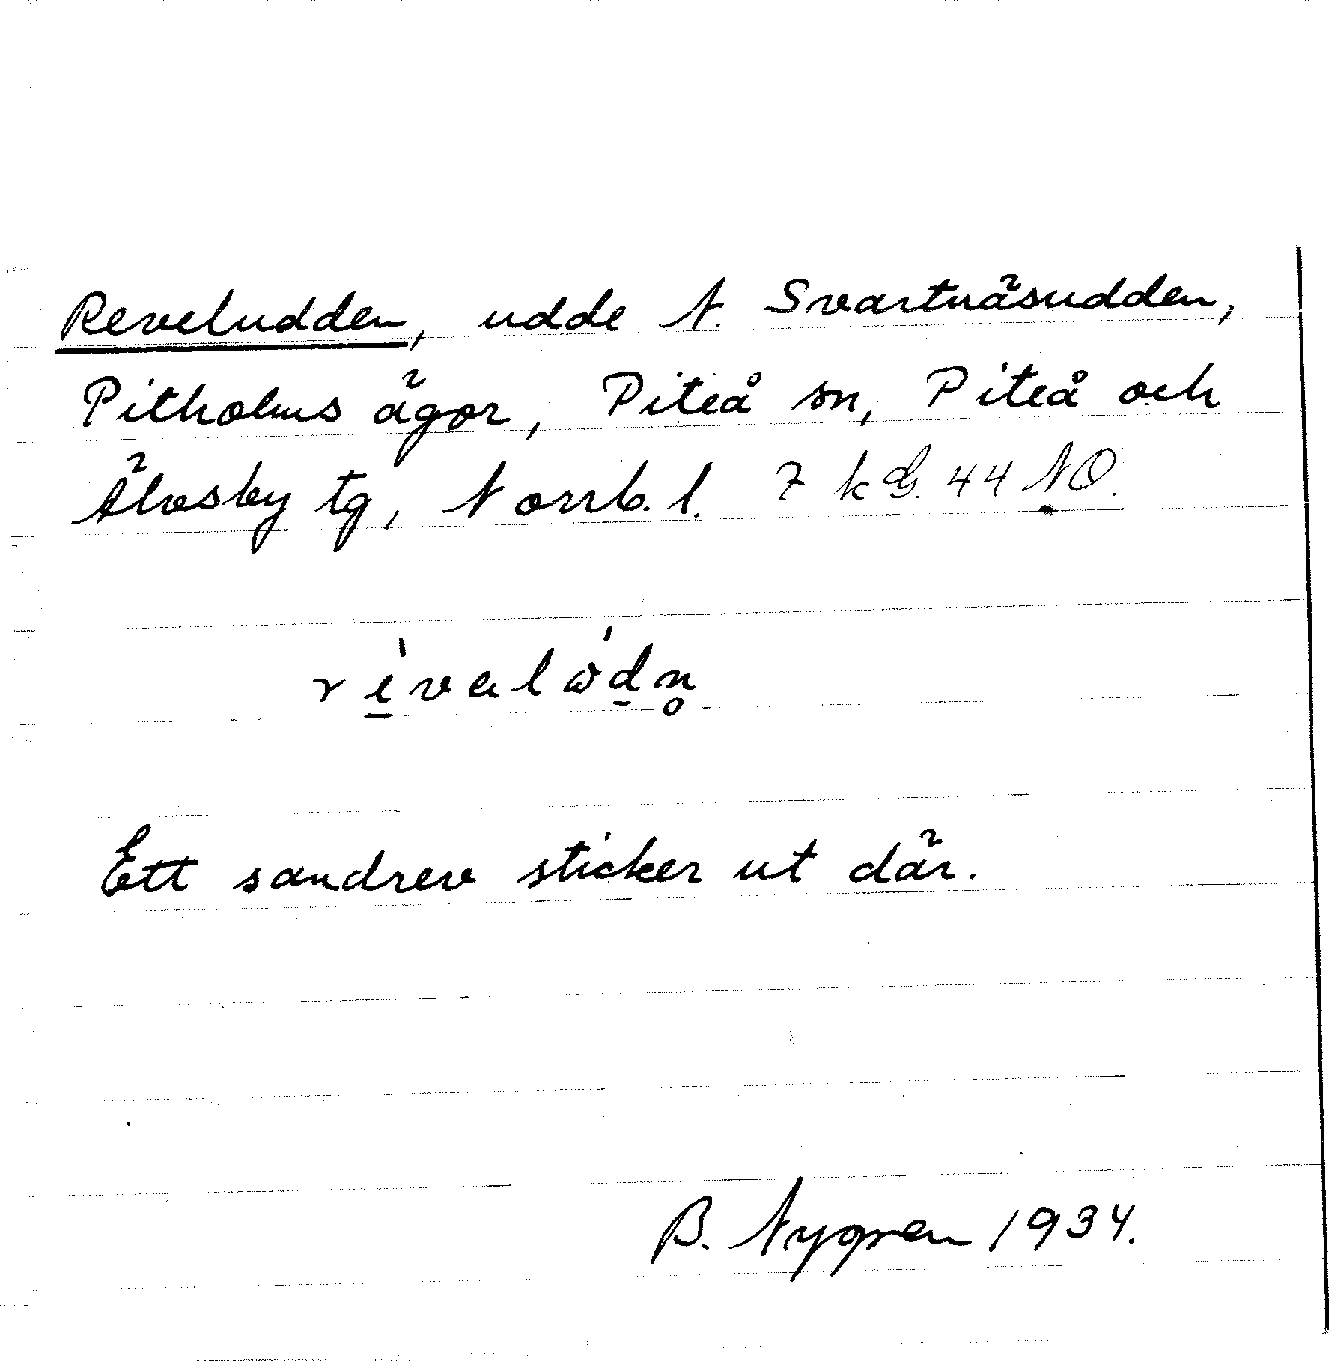 Reveludden, udde N. Svartnäsudden,
Pitholms ägor, Piteå sn, Piteå och
Älvsby tg, Norrb. l. 7 k G. 44 NO.
Ett sandrev sticker ut där.
B. Nygren 1934.